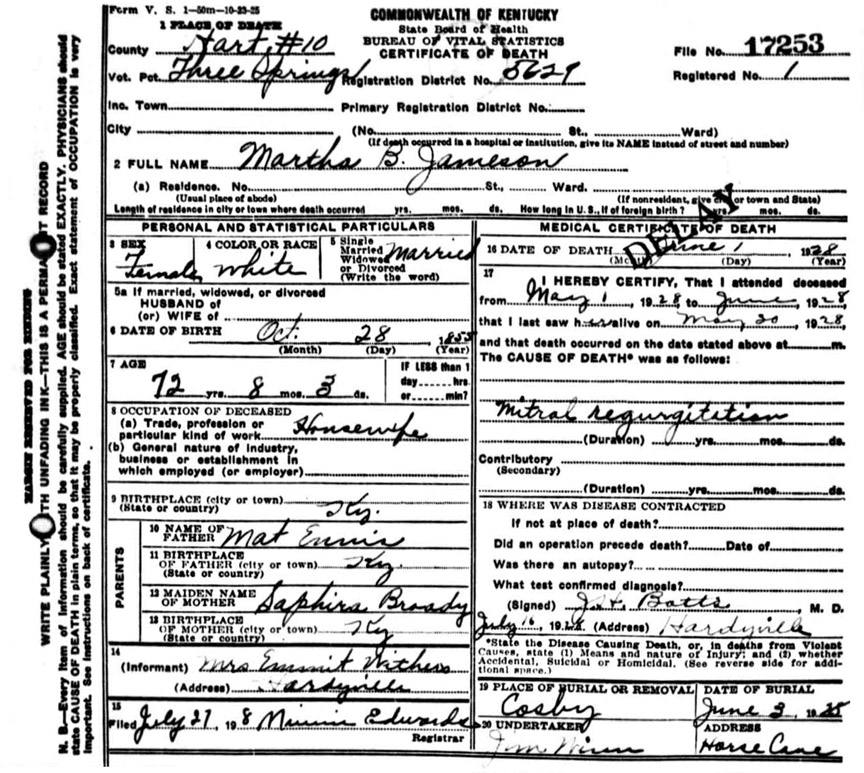 Form V. S. 1-50m-10-23-25
COMMONWEALTH OF KENTUCKY
State Board of Health
BUREAU OF VITAL STATISTICS
CERTIFICATE OF DEATH
1 PLACE OF DEATH
County Hart #10
File No. 17253
Vot. Pct. Three Springs Registration District No. 5629 Registered No. 1
Inc. Town Primary Registration District No.
City (No. St., Ward)
(If death occurred in a hospital or institution, give its NAME instead of street and number)
2 FULL NAME Martha B. Jameson
(a) Residence. No. St., Ward.
(Usual place of abode) (If nonresident, give or town and State)
Length of residence in city or town where death occurred yrs. mos. ds. How long in U. S., If of foreign birth? yrs. mos. ds.
DELAY
PERSONAL AND STATISTICAL PARTICULARS
3 SEX Female
4 COLOR OR RACE White
5 Single Married Widowed or Divorced (Write the word) Married
5a If married, widowed, or divorced
HUSBAND of
(or) WIFE of
6 DATE OF BIRTH Oct. 28, 1855
(Month) (Day) (Year)
7 AGE
72 yrs. 8 mos. 3 ds.
IF LESS than 1
day hrs.
or min?
8 OCCUPATION OF DECEASED
(a) Trade, profession or
particular kind of work Housewife
(b) General nature of industry,
business or establishment in
which employed (or employer)
9 BIRTHPLACE (city or town)
(State or country) Ky.
PARENTS
10 NAME OF
FATHER Mat Ennis
11 BIRTHPLACE
OF FATHER (city or town) Ky.
(State or country)
12 MAIDEN NAME
OF MOTHER Saphira Broady
13 BIRTHPLACE
OF MOTHER (city or town) Ky
(State or country)
14
(Informant) Mrs Emmit Withers
(Address) Hardyville
15
Filed July 27, 1928 Minnie Edwards
Registrar
MEDICAL CERTIFICATE OF DEATH
16 DATE OF DEATH June 1, 1928
(Day) (Year)
17
I HEREBY CERTIFY, That I attended deceased
from May 1, 1928, to June, 1928
that I last saw her alive on May 20, 1928,
and that death occurred on the date stated above at m.
The CAUSE OF DEATH* was as follows:
Mitral regurgitation
(Duration) yrs. mos. ds.
Contributory
(Secondary)
(Duration) yrs. mos. ds.
18 WHERE WAS DISEASE CONTRACTED
If not at place of death?
Did an operation precede death? Date of
Was there an autopsy?
What test confirmed diagnosis?
(Signed) J. H. Botts, M. D.
July 16, 1928 (Address) Hardyville
*State the Disease Causing Death, or, in deaths from Violent
Causes, state (1) Means and nature of Injury; and (2) whether
Accidental, Suicidal or Homicidal. (See reverse side for addi-
tional space.)
19 PLACE OF BURIAL OR REMOVAL DATE OF BURIAL
Cosby June 3, 1928
20 UNDERTAKER ADDRESS
Jim Winn Horse Cave
MARGIN RESERVED FOR BINDING
WRITE PLAINLY WITH UNFADING INK—THIS IS A PERMANENT RECORD
N. B.—Every item of information should be carefully supplied. AGE should be stated EXACTLY. PHYSICIANS should
state CAUSE OF DEATH in plain terms, so that it may be properly classified. Exact statement of OCCUPATION is very
important. See instructions on back of certificate.